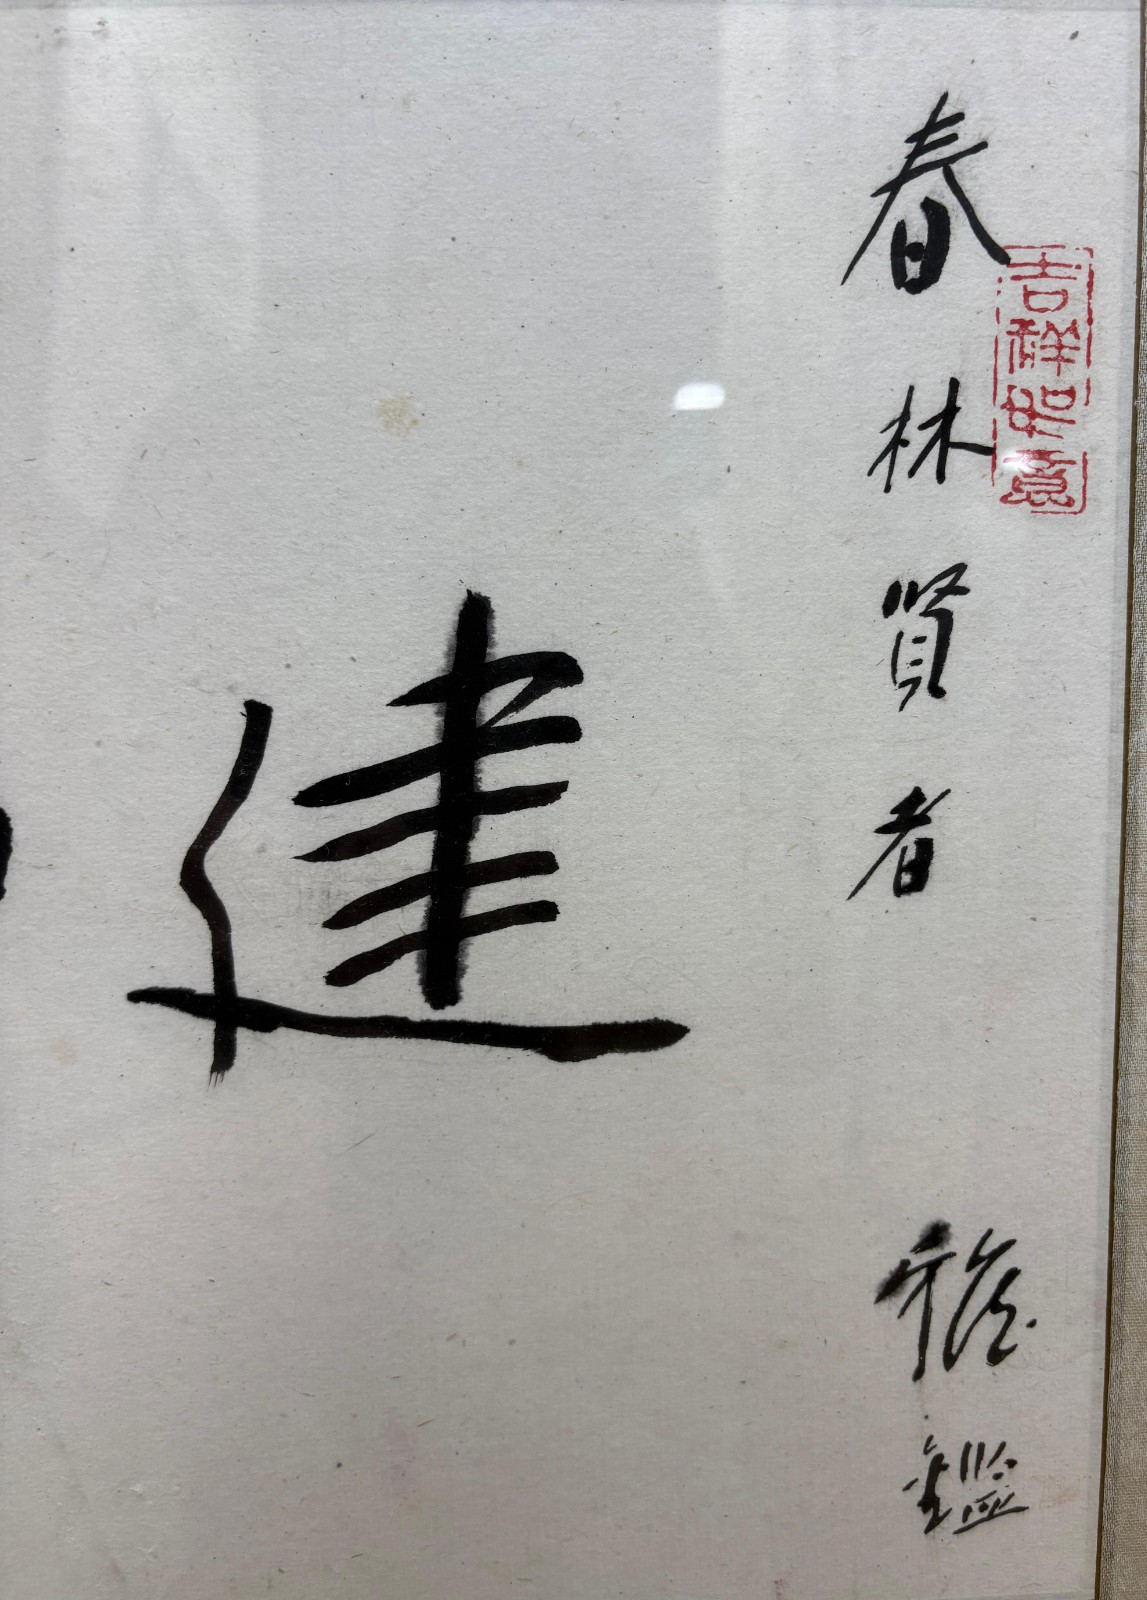 吉祥如意
春林賢者 雅鑑
建